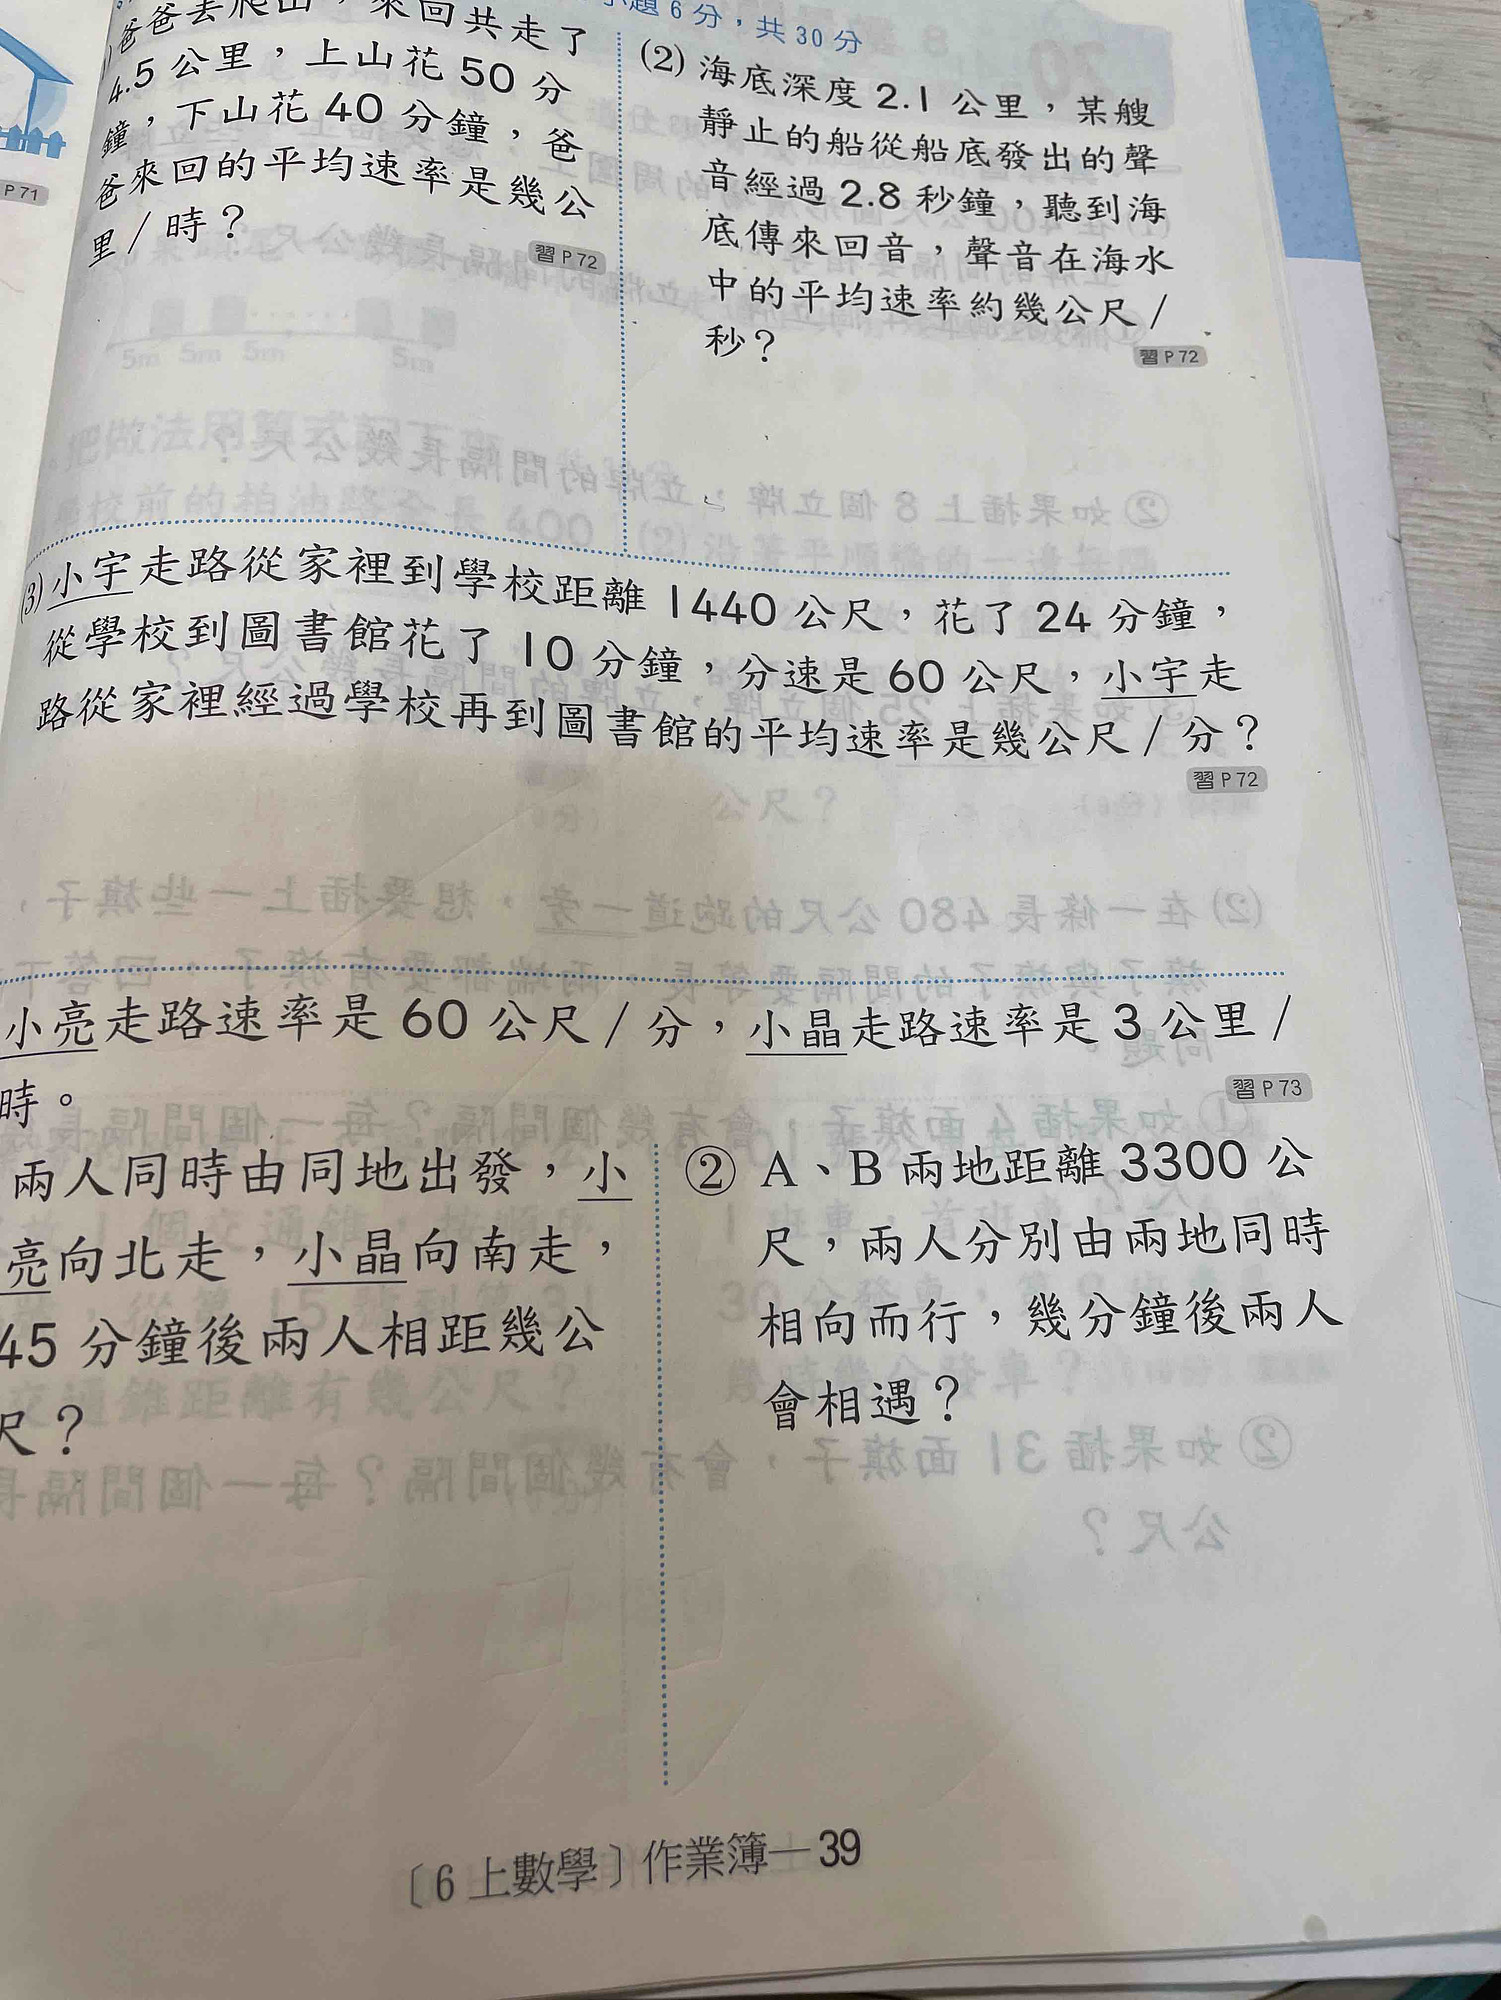 小題 6 分，共 30 分
爸爸去爬山，來回共走了
4.5 公里，上山花 50 分
鐘，下山花 40 分鐘，爸
爸來回的平均速率是幾公
里／時？
習 P 72
P 71
(2) 海底深度 2.1 公里，某艘
靜止的船從船底發出的聲
音經過 2.8 秒鐘，聽到海
底傳來回音，聲音在海水
中的平均速率約幾公尺／
秒？
習 P 72
(3) 小宇走路從家裡到學校距離 1440 公尺，花了 24 分鐘，
從學校到圖書館花了 10 分鐘，分速是 60 公尺，小宇走
路從家裡經過學校再到圖書館的平均速率是幾公尺／分？
習 P 72
小亮走路速率是 60 公尺／分，小晶走路速率是 3 公里／
時。
習 P 73
兩人同時由同地出發，小
亮向北走，小晶向南走，
45 分鐘後兩人相距幾公
尺？
② A、B 兩地距離 3300 公
尺，兩人分別由兩地同時
相向而行，幾分鐘後兩人
會相遇？
〔6 上數學〕作業簿—39